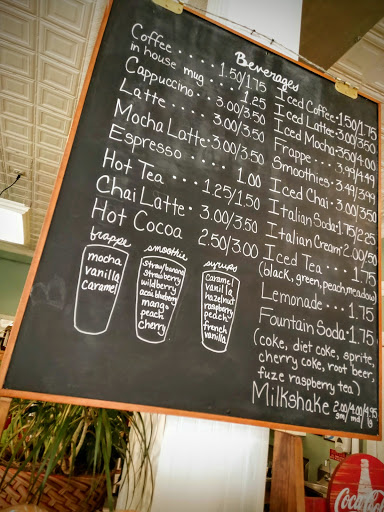 Beverages
Coffee .... 1.50/1.75
in house mug .... 1.25
Cappuccino . 3.00/3.50
Latte .... 3.00/3.50
Mocha Latte . 3.00/3.50
Espresso .... 1.00
Hot Tea .... 1.25/1.50
Chai Latte . 3.00/3.50
Hot Cocoa 2.50/3.00
Iced Coffee 1.50/1.75
Iced Latte 3.00/3.50
Iced Mocha 3.50/4.00
Frappe .. 3.99/4.99
Smoothies . 3.49/3.99
Iced Chai . 3.00/3.50
Italian Soda 1.75/2.25
Italian Cream 2.00/2.50
Iced Tea .... 1.75
(black, green, peach, meadow)
Lemonade .... 1.75
Fountain Soda . 1.75
(coke, diet coke, sprite,
cherry coke, root beer,
fuze raspberry tea)
Milkshake 2.00/4.00/4.95
sm/md/lg
frappe
mocha
vanilla
caramel
smoothie
straw/banana
strawberry
wildberry
acai blueberry
mango
peach
cherry
syrups
caramel
vanilla
hazelnut
raspberry
peach
french
vanilla
Coca-Cola